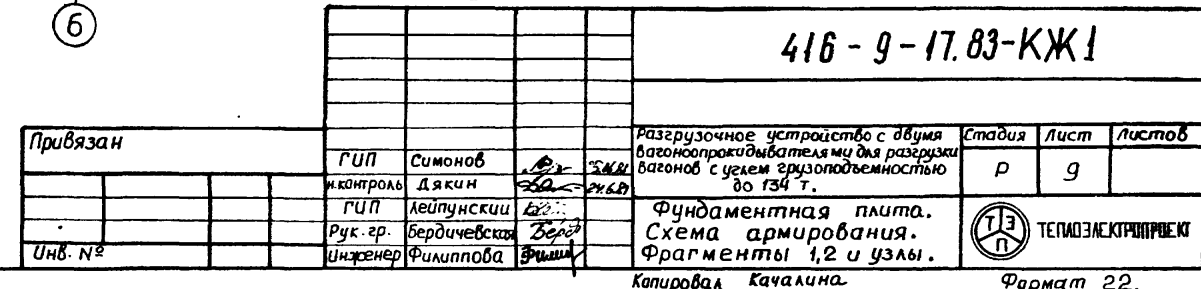 6
416-9-17.83-КЖ1
Привязан
Инв. №
ГИП Симонов
н.контроль Дякин
ГИП Лейпунский
Рук. гр. Бердичевская
Инженер Филиппова
Разгрузочное устройство с двумя
вагоноопрокидывателями для разгрузки
вагонов с углем грузоподъемностью
до 134 т.
Стадия Лист Листов
Р 9
Фундаментная плита.
Схема армирования.
Фрагменты 1,2 и узлы.
ТЭП ТЕПЛОЭЛЕКТРОПРОЕКТ
Копировал Качалина Формат 22.